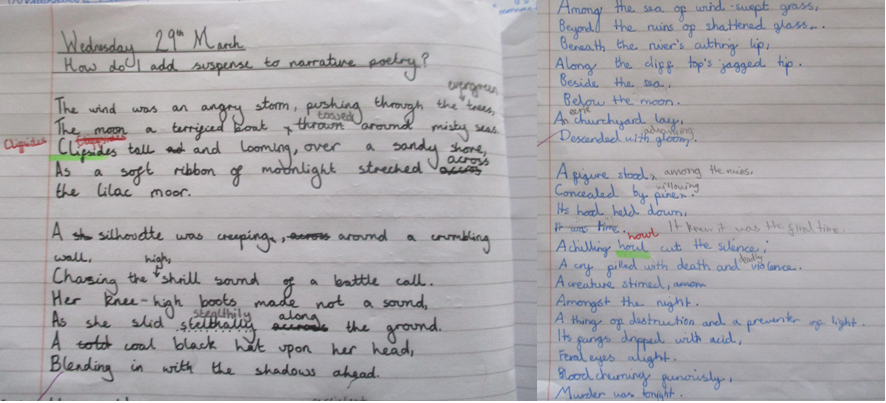 Wednesday 29th March
How do I add suspense to narrature poetry?
evergreen
The wind was an angry storm, pushing through the trees,
tossed
The moon a terrified boat, thrown around misty seas.
Clifsides
Clifsides tall and and looming, over a sandy shore,
across
As a soft ribbon of moonlight streched across
the lilac moor.
A sh silhoudte was creeping, across around a crumbling
wall, high,
Chasing the shrill sound of a battle call.
Her knee-high boots made not a sound,
stealthily along
As she slid stelthally across the ground.
A told coal black hat upon her head,
Blending in with the shadows ahead.
Among the sea of wind-swept grass,
Beyond the ruins of shattered glass.
Beneath the river's cutting lip,
Along the cliff top's jagged tip.
Beside the sea,
Below the moon.
eerie
An churchyard lay,
Descended with gloom.
A figure stood, among the ruins,
Concealed by pines.
Its hood held down,
It was time. It knew it was the final time.
howl
A chilling howl cut the silence,
deadly
A cry filled with death and violence.
A creature stirred, amon
Amongst the night.
A thing of destruction and a preventer of light.
Its fangs dripped with acid,
Feral eyes alight.
Blood churning furiously,
Murder was tonight.